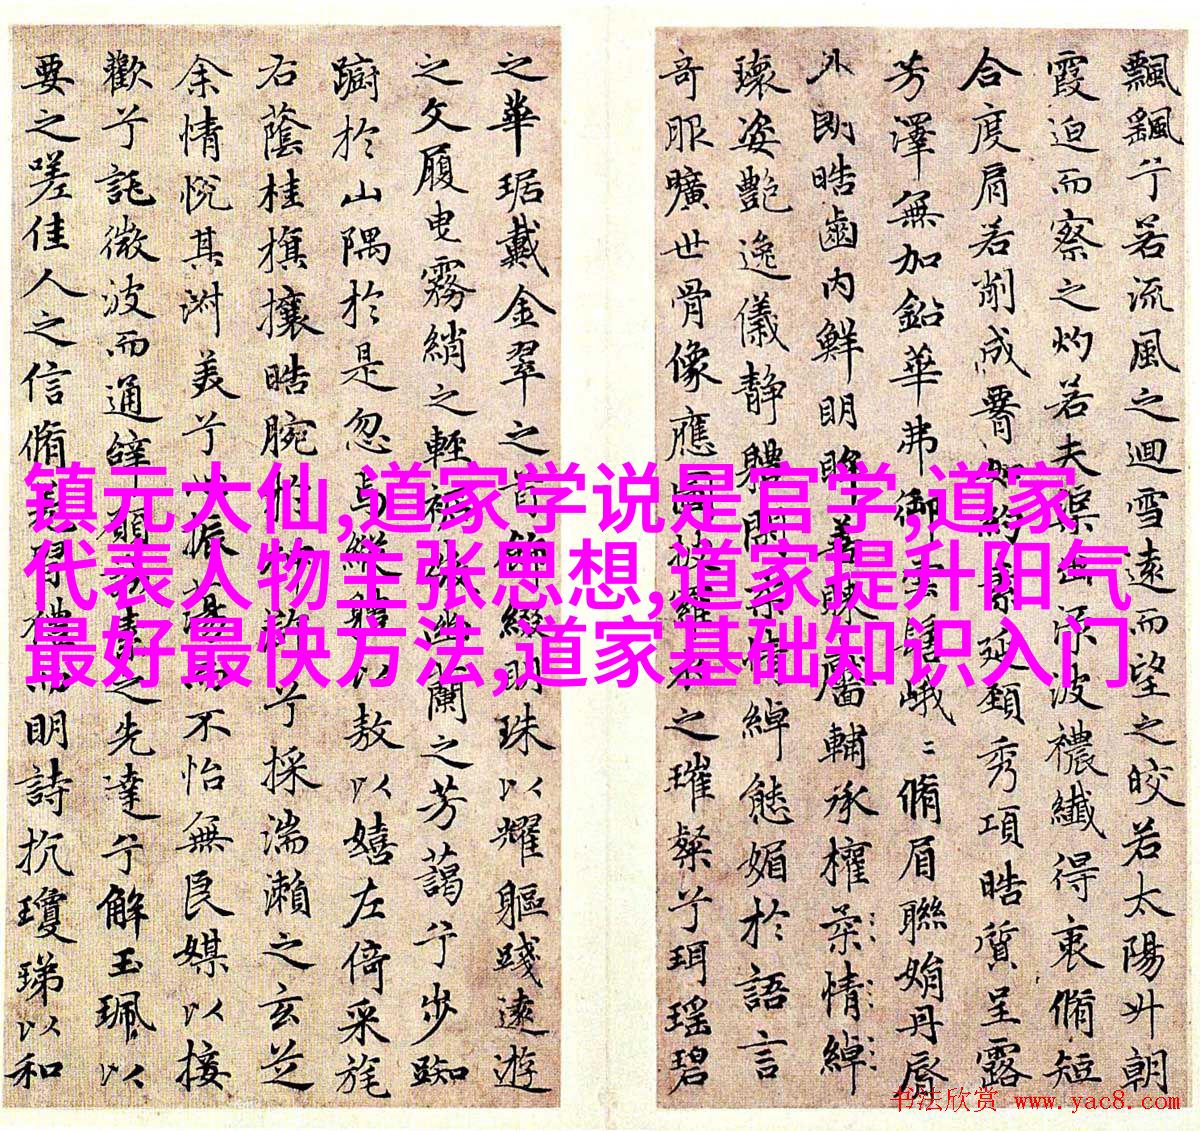 飄飖兮若流風之迴雪遠而望之皎若太陽升朝
霞迫而察之灼若夫蕖出淥波襛纖得衷脩短
合度肩若削成署如約素延頸秀項晧質呈露
芳澤無加鉛華弗御雲髻峨〻脩眉聯娟丹脣
外朗晧齒內鮮明眸善睞靨輔承權
瓌姿艷逸儀静體閑柔情綽態媚於語言
竒服曠世骨像應圖披羅衣之璀粲兮珥瑶碧
之華琚戴金翠之首飾綴明珠以耀軀踐遠遊
之文履曳霧綃之輕裾微幽蘭之芳藹兮步踟
蹰於山隅於是忽焉縱體以敖以嬉左倚采旄
右蔭桂旗攘晧腕於神滸兮採湍瀨之玄芝
余情悅其淑美兮心振蕩而不怡無良媒以接
歡兮託微波而通辝願誠素之先達兮解玉珮以
要之嗟佳人之信脩羌習禮而明詩抗瓊珶以和
镇元大仙,道家学说是官学,道家
代表人物主张思想,道家提升阳气
最好最快方法,道家基础知识入门
书法欣赏 www.yac8.com